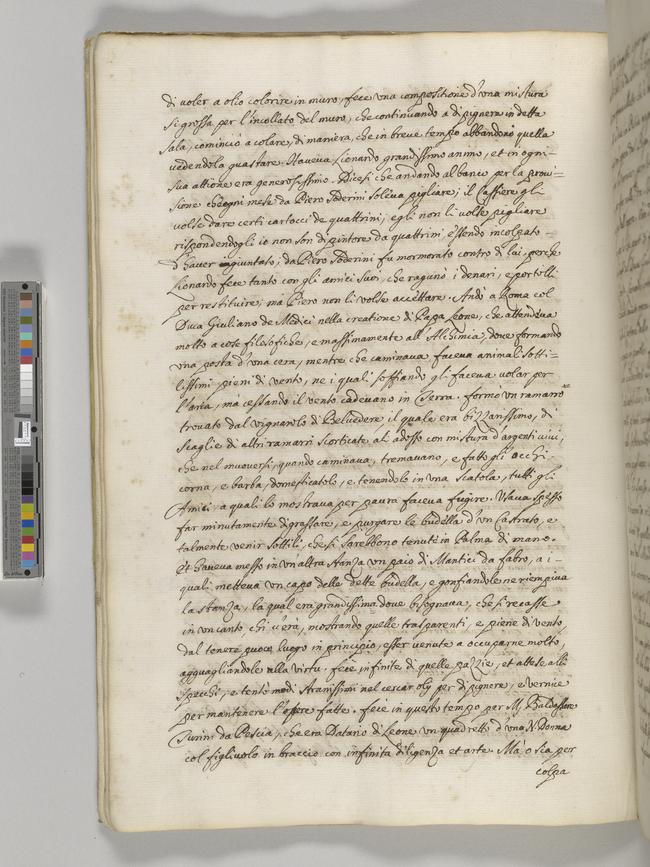 di voler a olio colorire in muro, fece una compositione d'una mistura
si grossa per l'incollato del muro, che continuando a dipignere in detta
sala, cominciò a colare, di maniera, che in breve tempo abbandonò quella
vedendola guastare. Haveva Lionardo grandissimo animo, et in ogni
sua attione era generosissimo. Dicesi che andando al banco per la provi-
sione ch'ogni mese da Piero Soderini soleva pigliare; il Cassiere gli
volse dare certi cartocci de quattrini; egli non li volse pigliare
rispondendogli io non son dipintore da quattrini, essendo incolpato
d'haver giuntato, da Piero Soderini fu mormorato contro di lui, perche
Lionardo fece tanto con gli amici suoi, che ragunò i denari, e portolli
per restituire; ma Piero non li volse accettare. Andò a Roma col
Duca Giuliano de Medici nella creatione di Papa Leone, che attendeva
molto a cose filosofiche, e massimamente all'Alchimia, dove formando
una pasta d'una cera, mentre che caminava faceva animali sotti-
lissimi pieni di vento, ne i quali soffiando gli faceva volar per
l'aria, ma cessando il vento cadevano in Terra. formò un ramarro
trovato dal vignarolo di Belvedere il quale era bizzarissimo, di
scaglie di altri ramarri scorticate al adosso con mistura d'argenti vivi,
che nel muoversi, quando caminava, tremavano, e fatto gli occhi
corna, e barba, domesticatolo, e tenendolo in una scatola, tutti gli
Amici, a quali lo mostrava per paura faceva fugire. Usava spesso
far minutamente digrassare, e purgare le budella d'un Castrato, e
talmente venir sottili, che si sarebbono tenute in Palma di mano.
Et haveva messo in un altra stanza un paio di Mantici da fabro, a i
quali metteva un capo delle dette budella, e gonfiandole ne riempiva
la stanza, la qual era grandissima dove bisognava, che si recasse
in un canto, chi v'era, mostrando quelle trasparenti, e piene di vento
dal tenere poco luogo in principio, esser venute a occuparne molto,
agguagliandole alla virtu. fece infinite di queste pazzie, et attese alli
specchi, e tentò modi stranissimi nel cercar olij per dipignere, e vernice
per mantenere l'opere fatte. fece in questo tempo per M. Baldassare
Turini da Pescia, ch'era Datario di Leone un quadretto d'una N. Donna
col figlivolo in braccio con infinita diligenza et arte. Ma o sia per
colpa